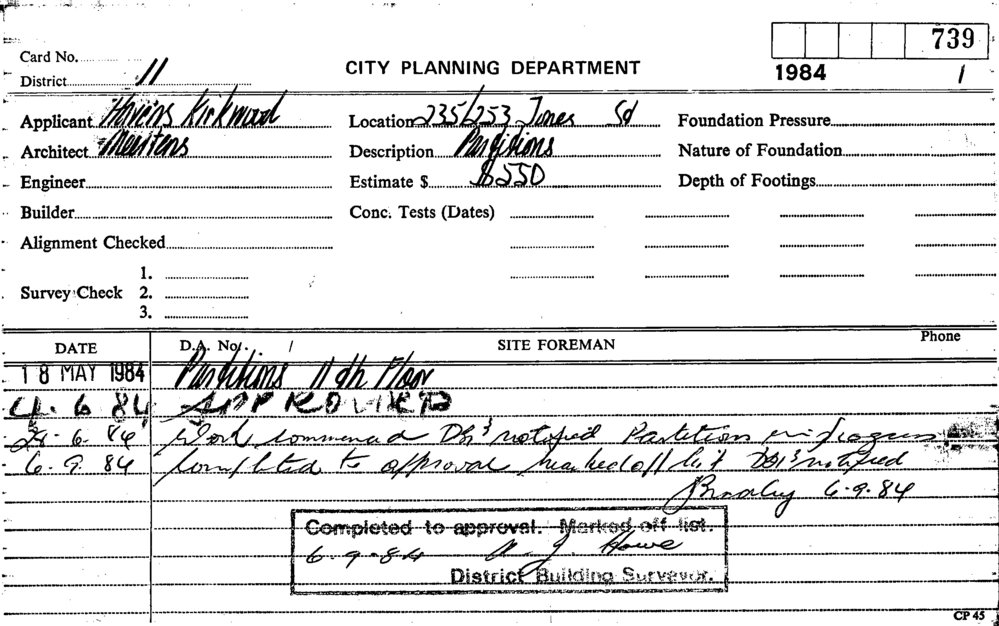 739
Card No.
CITY PLANNING DEPARTMENT
District 11
1984 1
Applicant Kirkwood Location 235/253 Jones Sd Foundation Pressure
Architect Description Partitions Nature of Foundation
Engineer Estimate $ $550 Depth of Footings
Builder Conc. Tests (Dates)
Alignment Checked
1.
Survey Check 2.
3.
DATE D.A. No. / SITE FOREMAN Phone
18 MAY 1984 Partitions 11th Floor
4. 6 84 APPROVED
6. 84 Work commenced notified Partition in
6. 9. 84 Completed to approval marked off list notified
6-9-84
Completed to approval. Marked off list.
6-9-84 J. Howe
District Building Surveyor.
CP 45